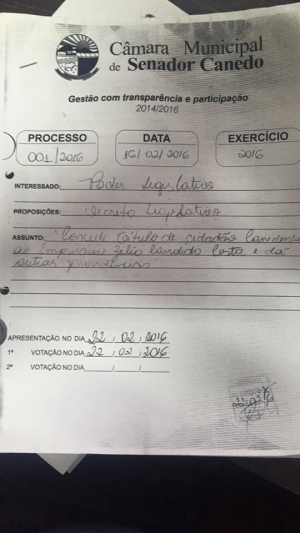 Câmara Municipal
de Senador Canedo
Gestão com transparência e participação
2014/2016
PROCESSO
001/2016
DATA
16/02/2016
EXERCÍCIO
2016
INTERESSADO: Poder Legislativo
PROPOSIÇÕES: Decreto Legislativo
ASSUNTO: "Concede título de cidadão Canedense
ao Empresário Zélio Candido Costa e dá
outras providências
APRESENTAÇÃO NO DIA 22 / 02 / 2016
1ª VOTAÇÃO NO DIA 22 / 02 / 2016
2ª VOTAÇÃO NO DIA / /